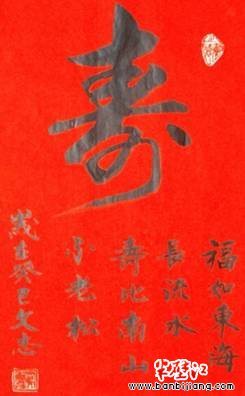 寿
福如東海
長流水
寿比南山
不老松
歲在癸巳文志
www.banbijiang.com